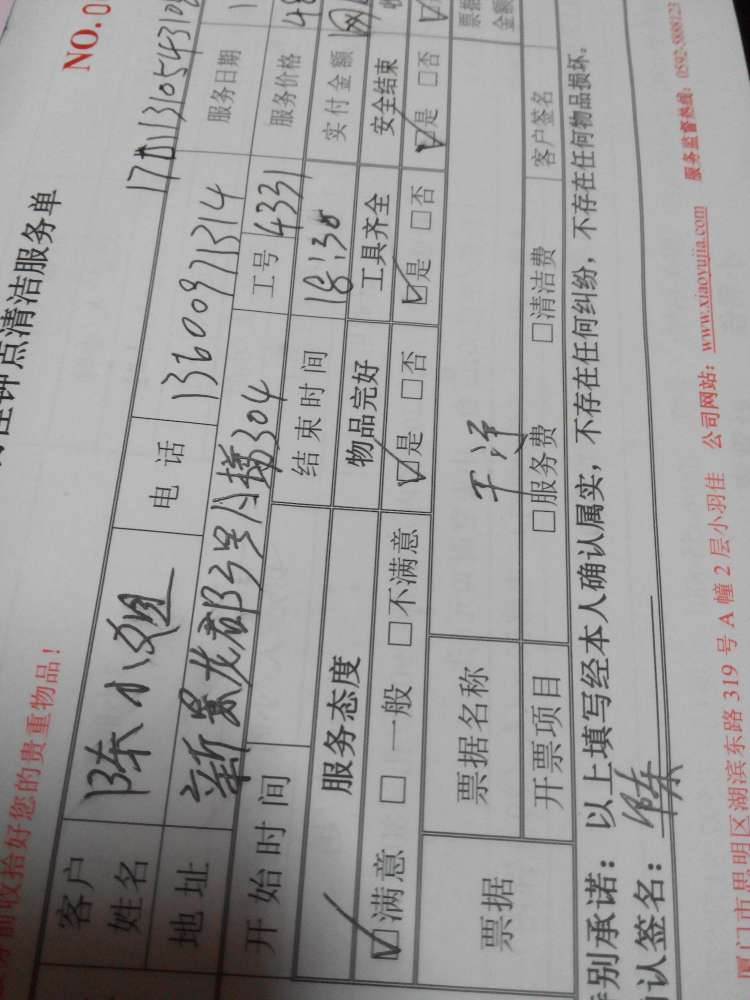 佳钟点清洁服务单
NO.0
前收拾好您的贵重物品!
客户姓名 陈小姐 电话 13600971314 服务日期
地址 新景龙郡 304 工号 4331 服务价格
开始时间 结束时间 18:30 实付金额
服务态度 物品完好 工具齐全 安全结束
☑满意 □一般 □不满意 ☑是 □否 ☑是 □否 ☑是 □否
票据 票据名称 干净 票据金额
开票项目 □服务费 □清洁费 客户签名
特别承诺:以上填写经本人确认属实,不存在任何纠纷,不存在任何物品损坏。
认签名:陈
厦门市思明区湖滨东路 319 号 A 幢 2 层小羽佳 公司网站:www.xiaoyujia.com 服务监督热线:0592-5888123